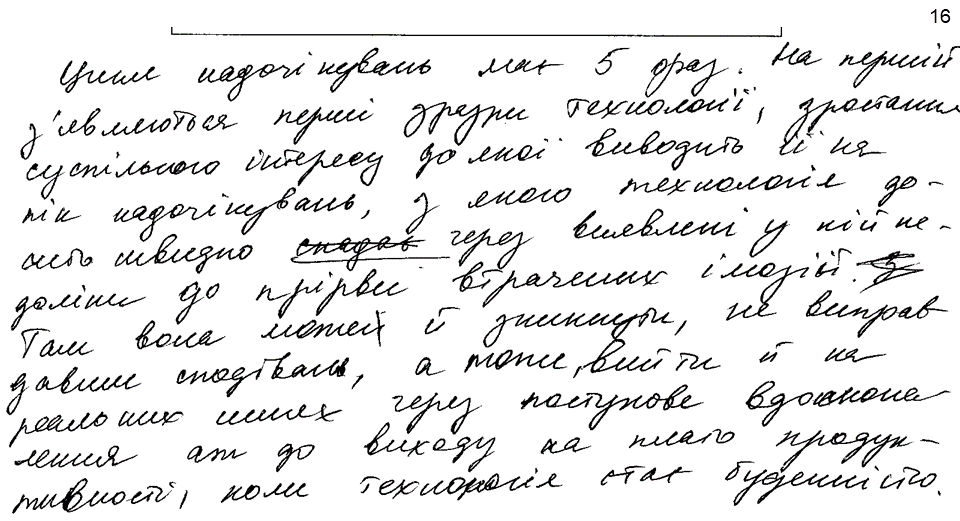 16
Цикл надочікувань має 5 фаз. На першій
з'являються перші зразки технології, зростання
суспільного інтересу до якої виводить її на
пік надочікувань, з якого технологія до-
сить швидко спадає через виявлені у ній не-
доліки до прірви втрачених ілюзій.
Там вона може й зникнути, не виправ
давши сподівань, а може, вийти й на
реальних шлях через поступове вдоскона
лення аж до виходу на плато продук-
тивності, коли технологія стає буденністю.